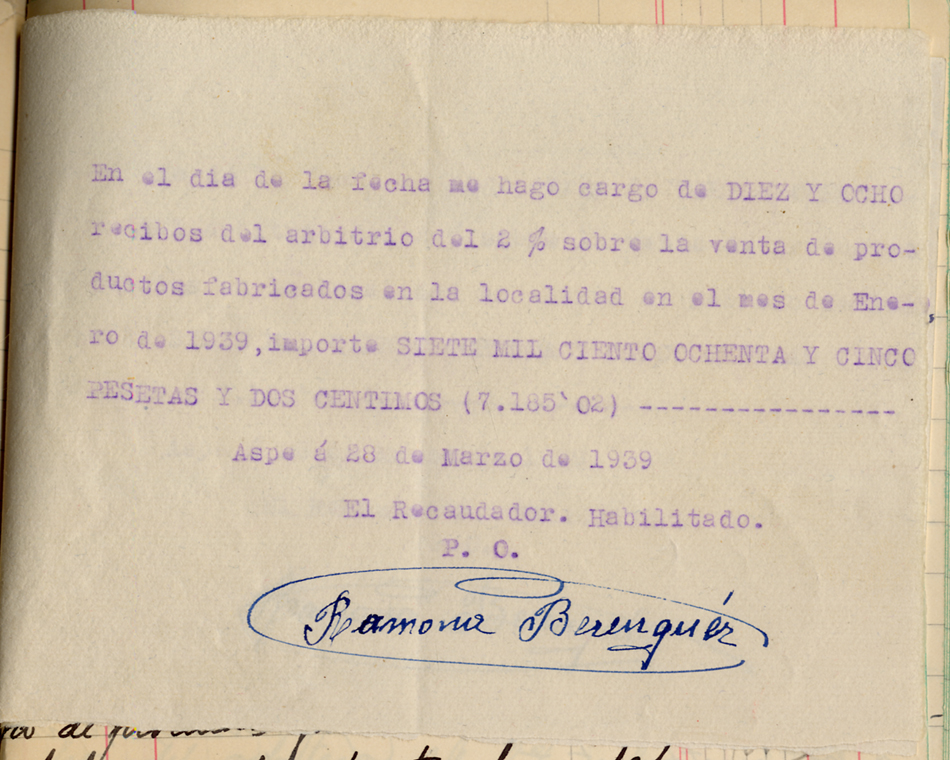 En el dia de la fecha me hago cargo de DIEZ Y OCHO
recibos del arbitrio del 2 % sobre la venta de pro-
ductos fabricados en la localidad en el mes de Ene-
ro de 1939,importe SIETE MIL CIENTO OCHENTA Y CINCO
PESETAS Y DOS CENTIMOS (7.185`02) ----------------
Aspe á 28 de Marzo de 1939
El Recaudador. Habilitado.
P. O.
Ramona Berenguér